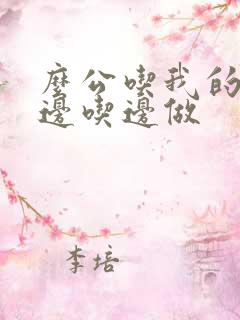 麼公喫我的
邊喫邊做
李培